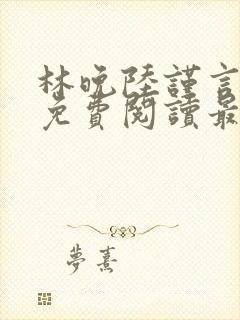 林晚陸謹言
免費閱讀最
夢熹